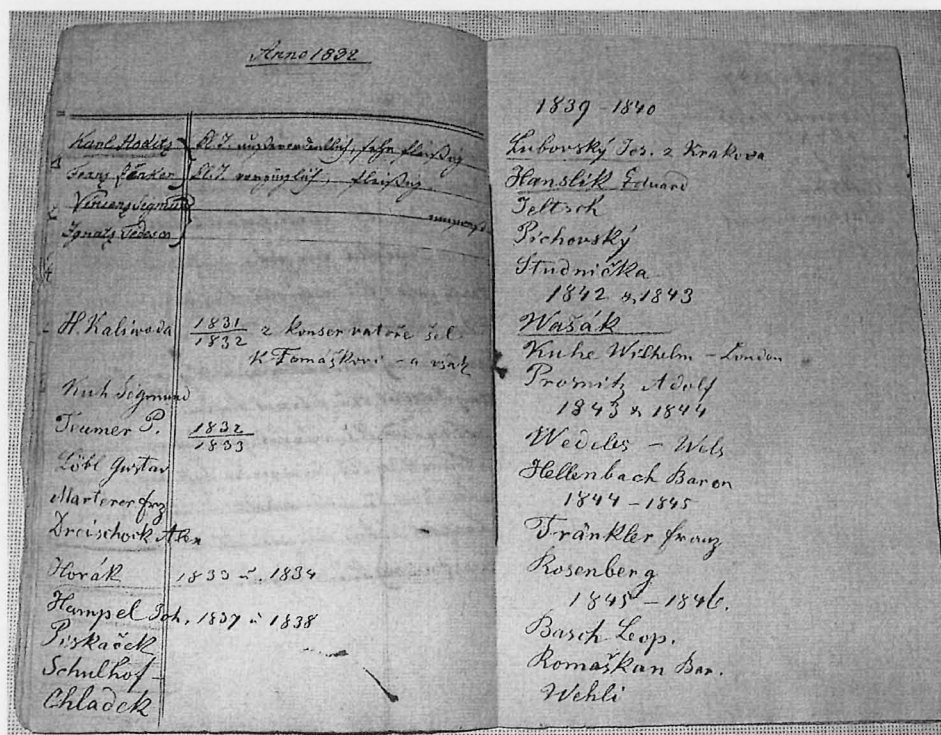 Arno 1832
Karl Hoditz } A. J. außerordentlich, sehr fleißig
} A. J. vorzüglich, fleißig.
Vincenz Sigmund
Ignatz Tedesco }
H. Kaliwoda 1831 z konservatoře šel
1832 K Tomáškovi – a však
Kuh Sigmund
Teumer P. 1832
1833
Löbl Gustav
Marterer Franz
Dreischock Alex
Horák 1833 u. 1834
Hampel Joh. 1837 u 1838
Piskaček
Schulhof
Chladek
1839 – 1840
Luborský Jos. z Krakova
Hanslik Eduard
Jeltsch
Pichovský
Studnička
1842 & 1843
Wašák
Kuhe Wilhelm – London
Prosnitz Adolf
1843 & 1844
Wedeles – Wels
Hellenbach Baron
1844 – 1845
Tränkler Franz
Rosenberg
1845 – 1846.
Basch Leop.
Romaškan Bar.
Wehli